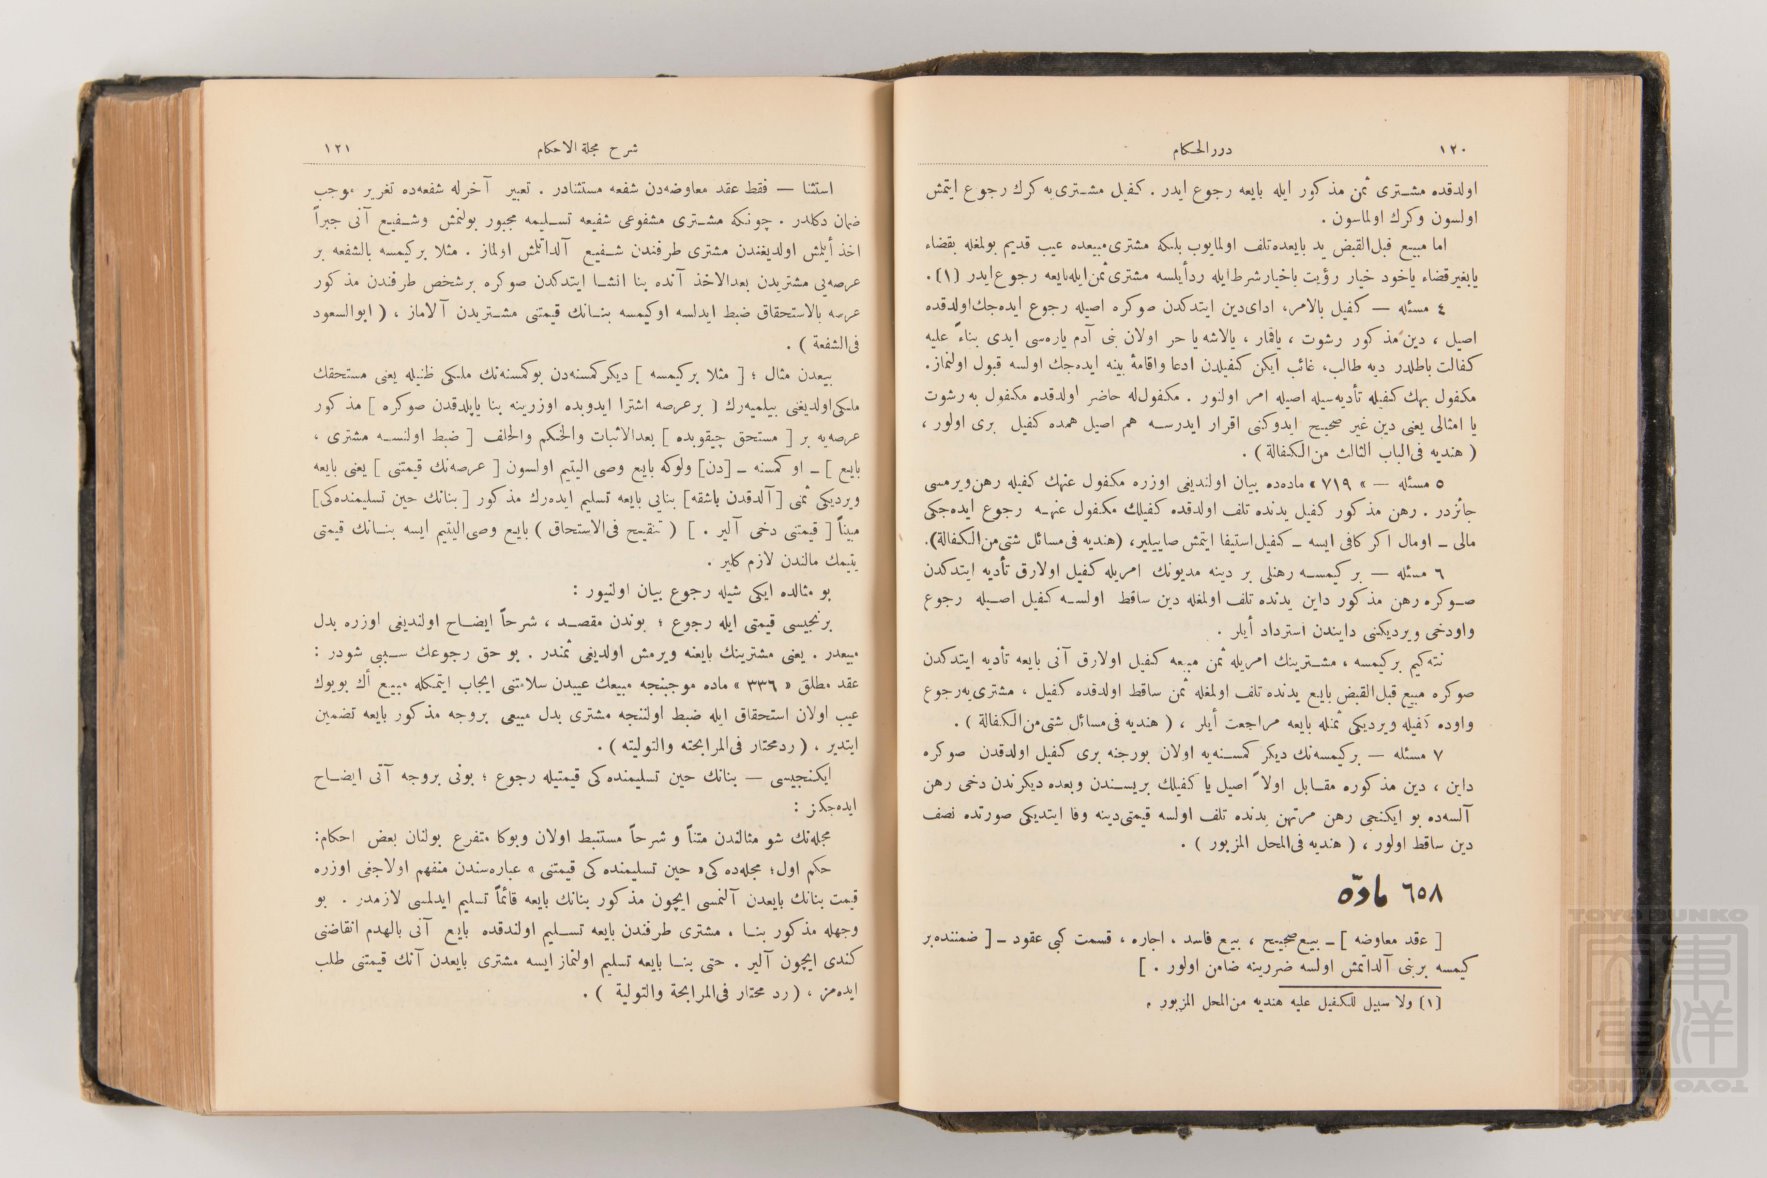 ١٢٠
دررالحكام
اولدقده مشـترى ثمن مذكور ايله بايعه رجوع ايدر . كفيل مشـترى‌يه كرك رجوع ايتمش
اولسون وكرك اولماسون .
اما مبيع قبل‌القبض يد بايعده تلف اولمايوب بلكه مشترى مبيعده عيب قديم بولمغله بقضاء
يابغيرقضاء ياخود خيار رؤيت ياخيارشرط ايله ردأيلسه مشترى ثمن ايله بايعه رجوع ايدر (١).
٤ مسئله — كفيل بالامر، اداى‌دين ايتدكدن صوكره اصيله رجوع ايده‌جك اولدقده
اصيل ، دين مذكور رشوت ، ياقمار ، يالاشه يا حر اولان بنى آدم ياره‌سى ايدى بناءً عليه
كفالت باطلدر ديه طالب، غائب ايكن كفيلدن ادعا واقامهٔ بينه ايده‌جك اولسه قبول اولنماز.
مكفول بهك كفيله تأديه‌سيله اصيله امر اولنور . مكفول‌له حاضر اولدقده مكفول به رشوت
يا امثالى يعنى دين غير صحيح ايدوكنى اقرار ايدرسـه هم اصيل همده كفيل برى اولور ،
( هنديه فى‌الباب الثالث من‌الكفالة ) .
٥ مسئله — « ٧١٩ » ماده‌ده بيان اولنديغى اوزره مكفول عنهك كفيله رهن ويرمسى
جائزدر . رهن مذكور كفيل يدنده تلف اولدقده كفيلك مكفول عنهـه رجوع ايده‌جكى
مالى ــ اومال اكر كافى ايسه ــ كفيل استيفا ايتمش صاييلير، (هنديه فى‌مسائل شتى من‌الكفالة).
٦ مسئله — بر كيمسـه رهنلى بر دينه مديونك امريله كفيل اولارق تأديه ايتدكدن
صـوكره رهن مذكور داين يدنده تلف اولمغله دين ساقط اولسـه كفيل اصـيله رجوع
واودخى ويرديكنى دايندن استرداد أيلر .
نته‌كيم بركيمسه ، مشـترينك امريله ثمن مبيعه كفيل اولارق آنى بايعه تأديه ايتدكدن
صوكره مبيع قبل‌القبض بايع يدنده تلف اولمغله ثمن ساقط اولدقده كفيل ، مشترى‌يه رجوع
واوده كفيله ويرديكى ثمنله بايعه مراجعت أيلر ، ( هنديه فى‌مسائل شتى من‌الكفالة ) .
٧ مسئله — بركيمسه‌نك ديكر كمسـنه‌يه اولان بورجنه برى كفيل اولدقدن صوكره
داين ، دين مذكوره مقـابل اولاً اصيل يا كفيلك بريسـندن وبعده ديكرندن دخى رهن
آلسه‌ده بو ايكنجى رهن مرتهن يدنده تلف اولسه قيمتى‌دينه وفا ايتديكى صورتده نصف
دين ساقط اولور ، ( هنديه فى‌المحل المزبور ) .
٦٥٨ مادّه
[ عقد معاوضه ] ــ بيع‌صحيح ، بيع فاسد ، اجاره ، قسمت كبى عقود ــ [ ضمننده بر
كيمسه بربنى آلداتمش اولسه ضررينه ضامن اولور . ]
(١) ولا سبيل للكفيل عليه هنديه من‌المحل المزبور .
شرح مجلة الاحكام
١٢١
استثنا — فقط عقد معاوضه‌دن شفعه مستثنادر . تعبير آخرله شفعه‌ده تغرير موجب
ضمان دكلدر . چونكه مشـترى مشفوعى شفيعه تسـليمه مجبور بولنمش وشـفيع آنى جبراً
اخذ أيلمش اولديغندن مشترى طرفندن شـفيع آلداتلمش اولماز . مثلا بركيمسه بالشفعه بر
عرصه‌يى مشتريدن بعدالاخذ آنده بنا انشـا ايتدكدن صوكره برشخص طرفندن مذكور
عرصه بالاستحقاق ضبط ايدلسه اوكيمسه بنـانك قيمتنى مشـتريدن آلاماز ، ( ابوالسعود
فى‌الشفعة ) .
بيعدن مثال ؛ [ مثلا بركيمسه ] ديكر كمسنه‌دن بوكمسنه‌نك ملكى ظنيله يعنى مستحقك
ملكى اولديغى بيلميه‌رك [ برعرصه اشترا ايدوبده اوزرينه بنا ياپلدقدن صوكره ] مذكور
عرصه‌يه بر [ مستحق چيقوبده ] بعدالاثبات والحكم والحلف [ ضبط اولنسـه مشترى ،
بايع ] ــ او كمسنه ــ [دن] ولوكه بايع وصى اليتيم اولسون [ عرصه‌نك قيمتنى ] يعنى بايعه
ويرديكى ثمنى [ آلدقدن باشقه] بنايى بايعه تسليم ايده‌رك مذكور [ بنانك حين تسليمنده‌كى]
مبيناً [ قيمتنى دخى آلير . ] ( تنقيح فى‌الاستحاق ) بايع وصى‌اليتيم ايسه بنـانك قيمتى
يتيمك مالندن لازم كلير .
بو مثالده ايكى شيله رجوع بيان اولنيور :
برنجيسى قيمتى ايله رجوع ؛ بوندن مقصـد ، شرحاً ايضـاح اولنديغى اوزره بدل
مبيعدر . يعنى مشترينك بايعنه ويرمش اولديغى ثمندر . بو حق رجوعك سـببى شودر :
عقد مطلق « ٣٣٦ » ماده موجبنجه مبيعك عيبدن سلامتنى ايجاب ايتمكله مبيع أك بويوك
عيب اولان استحقاق ايله ضبط اولننجه مشترى بدل مبيعى بروجه مذكور بايعه تضمين
ايتدير ، ( ردمحتار فى‌المرابحته والتوليته ) .
ايكنجيسى — بنانك حين تسليمنده‌كى قيمتيله رجوع ؛ بونى بروجه آتى ايضـاح
ايده‌جكز :
مجله‌نك شو مثالندن متناً و شرحاً مستنبط اولان وبوكا متفرع بولنان بعض احكام:
حكم اول؛ مجله‌ده كى« حين تسليمنده كى قيمتنى » عباره‌سندن منفهم اولاجغى اوزره
قيمت بنانك بايعدن آلنمسى ايچون مذكور بنانك بايعه قائماً تسليم ايدلمسى لازمدر . بو
وجهله مذكور بنـا ، مشترى طرفندن بايعه تسـليم اولندقده بايع آنى بالهدم انقاضنى
كندى ايچون آلير . حتى بنـا بايعه تسليم اولنماز ايسه مشترى بايعدن آنك قيمتنى طلب
ايده‌مز ، (رد محتار فى‌المرابحة والتولية ) .
TOYO BUNKO